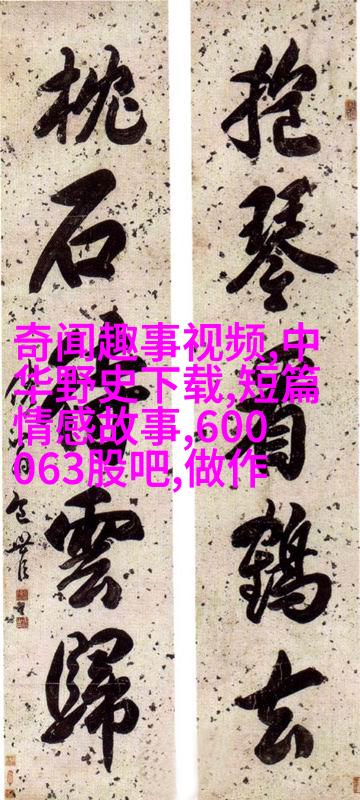 抱琴看鶴去
枕石雲歸
包世臣
奇闻趣事视频,中
华野史下载,短篇
情感故事,600
063股吧,做作